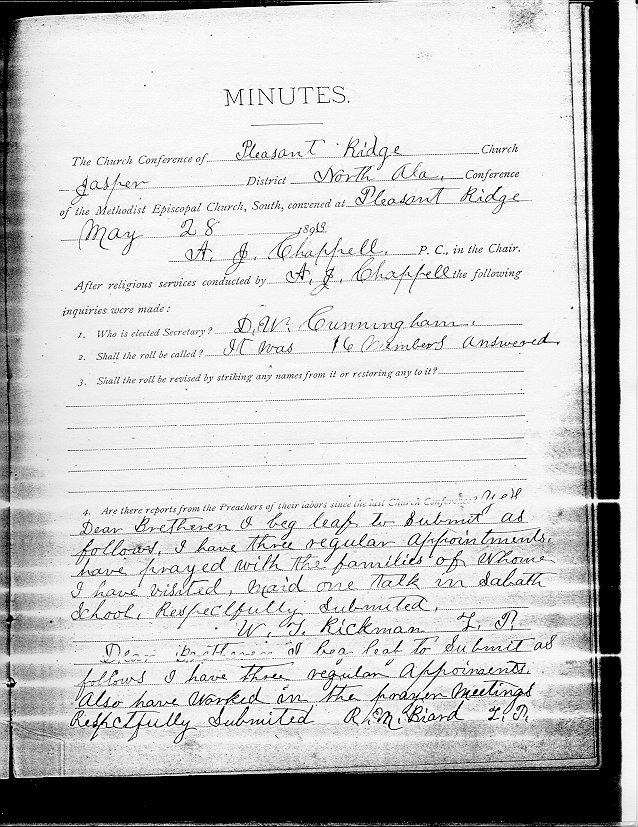 MINUTES.
The Church Conference of Pleasant Ridge Church
Jasper District North Ala. Conference
of the Methodist Episcopal Church, South, convened at Pleasant Ridge
May 28 189
A. J. Chappell. P. C., in the Chair.
After religious services conducted by A. J. Chappell the following
inquiries were made:
1. Who is elected Secretary? D. W. Cunningham.
2. Shall the roll be called? It was 16 Members answered
3. Shall the roll be revised by striking any names from it or restoring any to it?
4. Are there reports from the Preachers of their labors since the last Church Conference?
Dear Bretheren I beg leaf to submit as
follows. I have three regular appointments.
have prayed with the families of Whome
I have visited, maid one talk in Sabath
School, Respectfully Submited.
W. T. Rickman L. P.
Dear Bretheren I beg leaf to Submit as
follows I have three regular Appoinments.
Also have worked in the prayer meetings
Respctfully Submited R. M. Biard L. P.